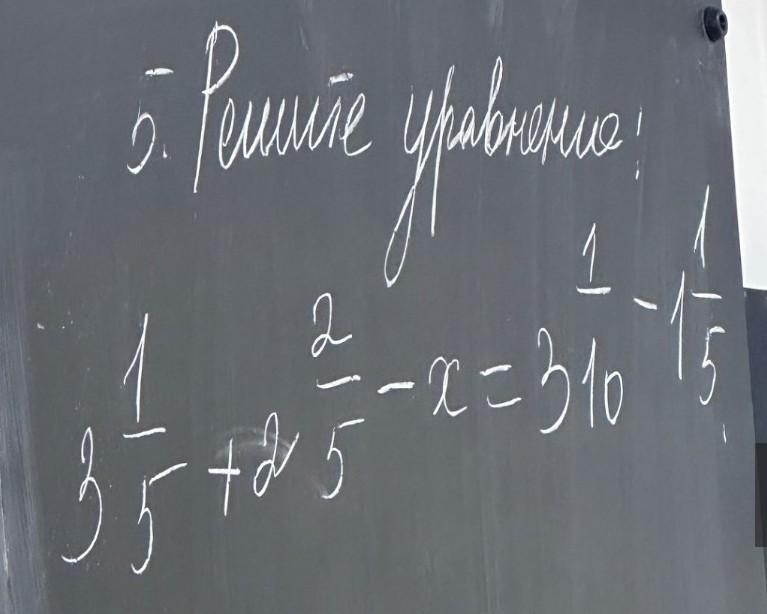 5. Решите уравнение!
3 1/5 + 2 2/5 - x = 3 1/10 - 1 1/5